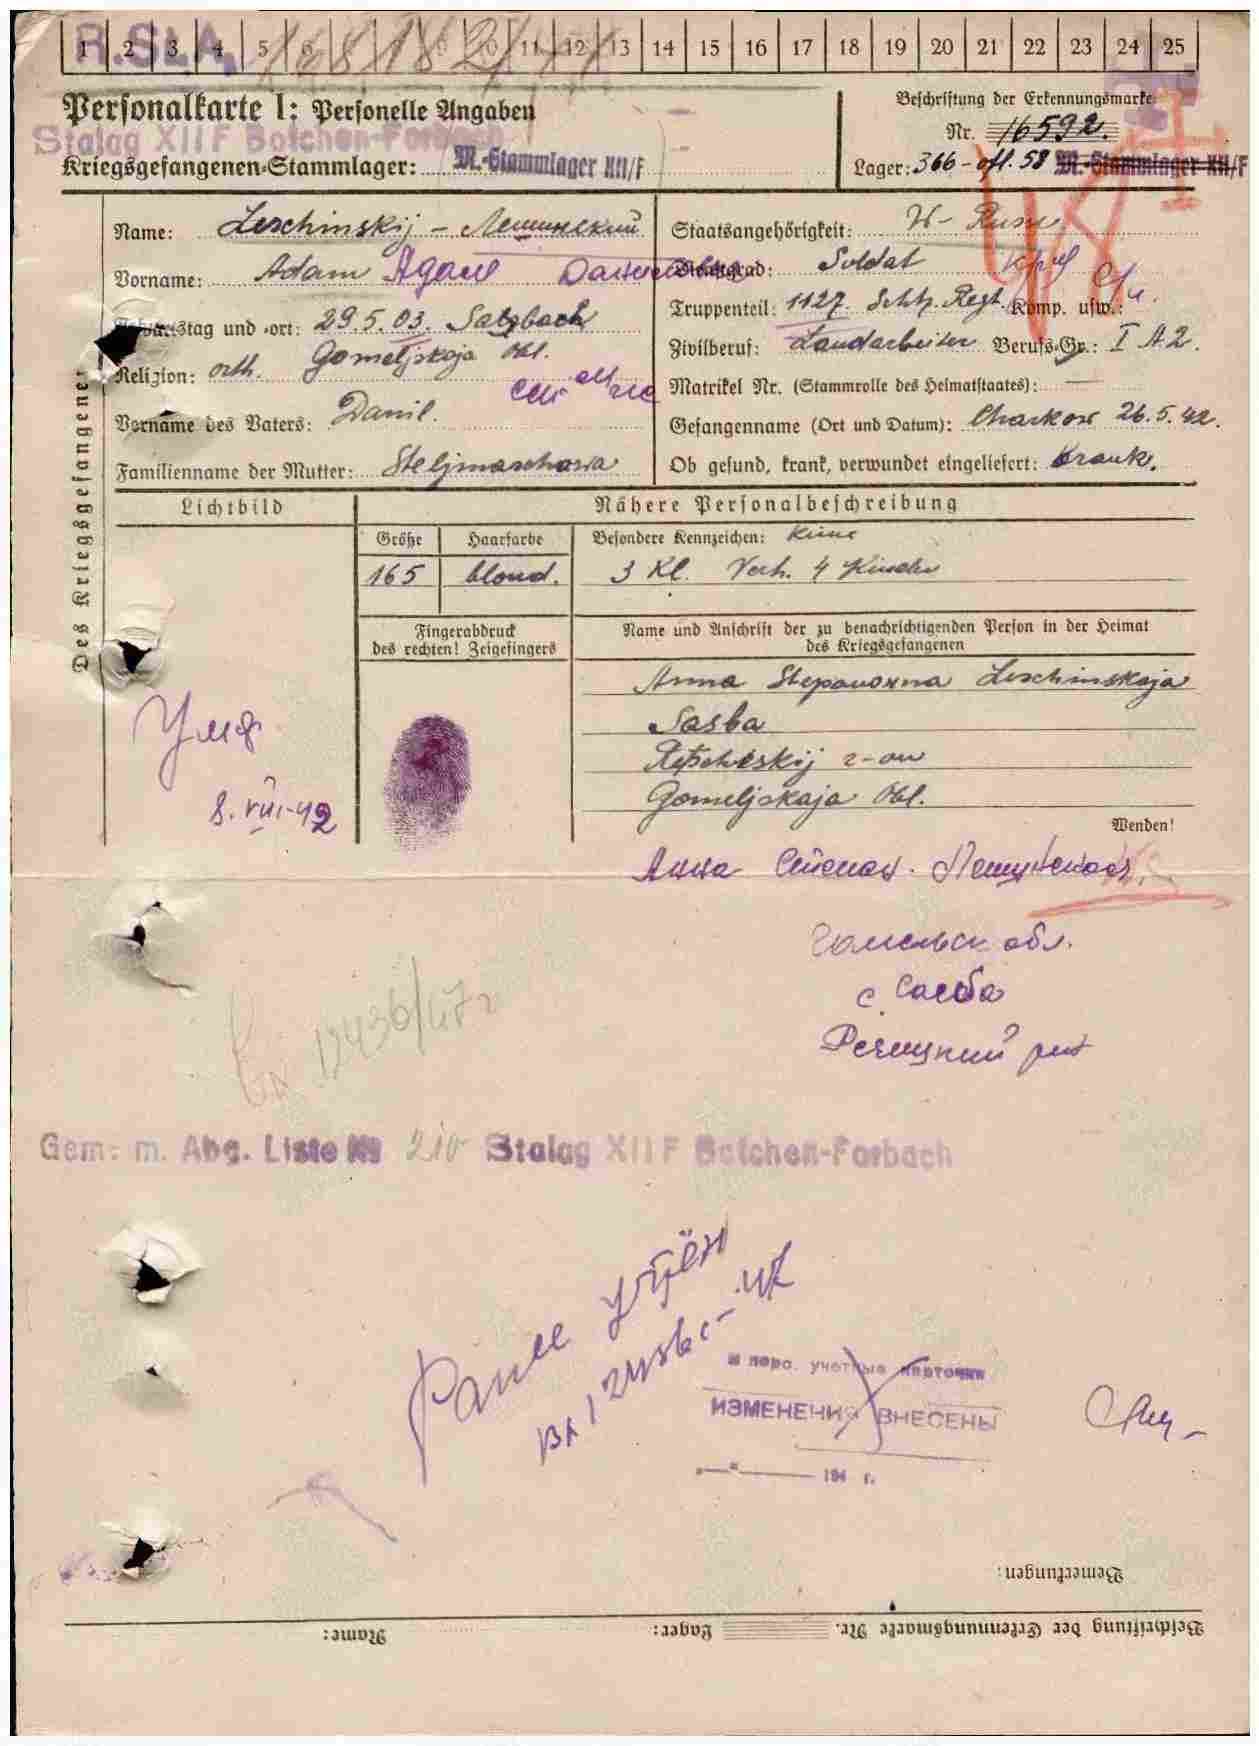 1 2 3 4 5 11 12 13 14 15 16 17 18 19 20 21 22 23 24 25
R.SLA.
Personalkarte I: Personelle Angaben
Beschriftung der Erkennungsmarke
Nr. 16592
Stalag XII F Bolchen-Forbach
Kriegsgefangenen-Stammlager: M.-Stammlager XII/F
Lager: 366 - off. 58 M.-Stammlager XII/F
Des Kriegsgefangenen
Name: Leschinskij - Лешинский
Staatsangehörigkeit: Russe
Vorname: Adam Адам
Dienstgrad: Soldat
Geburtstag und -ort: 29.5.03. Sasbach
Gomeljskaja Obl.
Truppenteil: 1127. Schtz. Regt. Komp. usw.:
Zivilberuf: Landarbeiter Berufs-Gr.: I A 2.
Religion: orth.
Matrikel Nr. (Stammrolle des Heimatstaates): —
Vorname des Vaters: Danil.
Gefangenname (Ort und Datum): Charkow 26.5.42.
Familienname der Mutter: Steljmaschowa
Ob gesund, krank, verwundet eingeliefert: krank.
Lichtbild
Nähere Personalbeschreibung
Größe Haarfarbe
Besondere Kennzeichen: keine
165 blond.
3 Kl. Verh. 4 Kinder
Fingerabdruck
des rechten! Zeigefingers
Name und Anschrift der zu benachrichtigenden Person in der Heimat
des Kriegsgefangenen
Anna Stepanowna Leschinskaja
Sasba
Retschiskij r-on
Gomeljskaja Obl.
Wenden!
8.VIII-42
Анна Степан. Лешинская
Гомельск обл.
с. Сасба
Речицкий
12436/47г
Gem: m. Abg. Liste № 210 Stalag XII F Bolchen-Forbach
Ранее учтён
вх
В перс. учетные карточки
ИЗМЕНЕНИЯ ВНЕСЕНЫ
„—“ 194 г.
Bemerkungen:
Name: Lager: Beschriftung der Erkennungsmarke Nr.